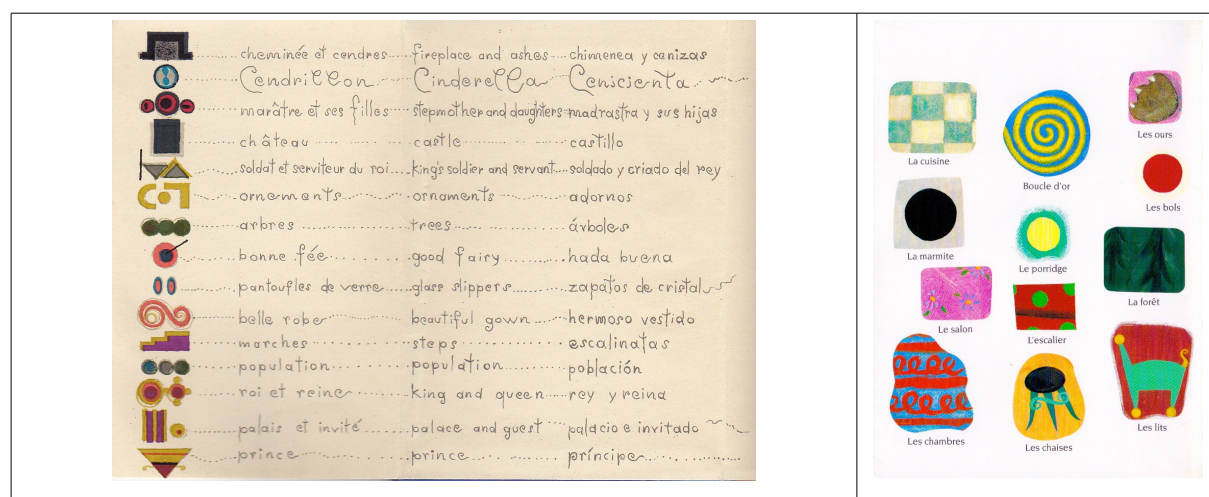 cheminée et cendres fireplace and ashes chimenea y cenizas
Cendrillon Cinderella Cenicienta
marâtre et ses filles stepmother and daughters madrastra y sus hijas
château castle castillo
soldat et serviteur du roi king's soldier and servant soldado y criado del rey
ornements ornaments adornos
arbres trees árboles
bonne fée good fairy hada buena
pantoufles de verre glass slippers zapatos de cristal
belle robe beautiful gown hermoso vestido
marches steps escalinatas
population population población
roi et reine king and queen rey y reina
palais et invité palace and guest palacio e invitado
prince prince príncipe
Les ours
La cuisine
Boucle d'or
Les bols
La marmite
Le porridge
La forêt
Le salon
L'escalier
Les chambres
Les chaises
Les lits